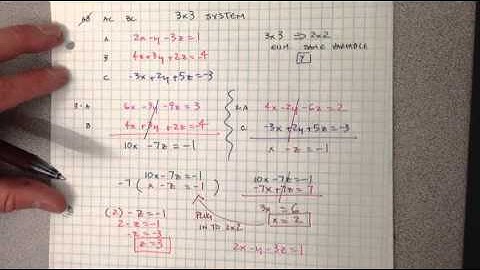 AB AC BC 3x3 SYSTEM
A 2x-y-3z=1
B 4x+3y+2z=-4
C -3x+2y+5z=-3
3x3 ⇒ 2x2
ELIM. SAME VARIABLE
y
3·A 6x-3y-9z=3
B 4x+3y+2z=-4
10x -7z=-1
2·A 4x-2y-6z=2
C -3x+2y+5z=-3
x -z=-1
10x-7z=-1
-7(x -z=-1)
10x-7z=-1
-7x+7z=7
3x=6
x=2
(2)-z=-1
2-z=-1
-z=-3
z=3
PLUG
INTO 2x2
2x-y-3z=1